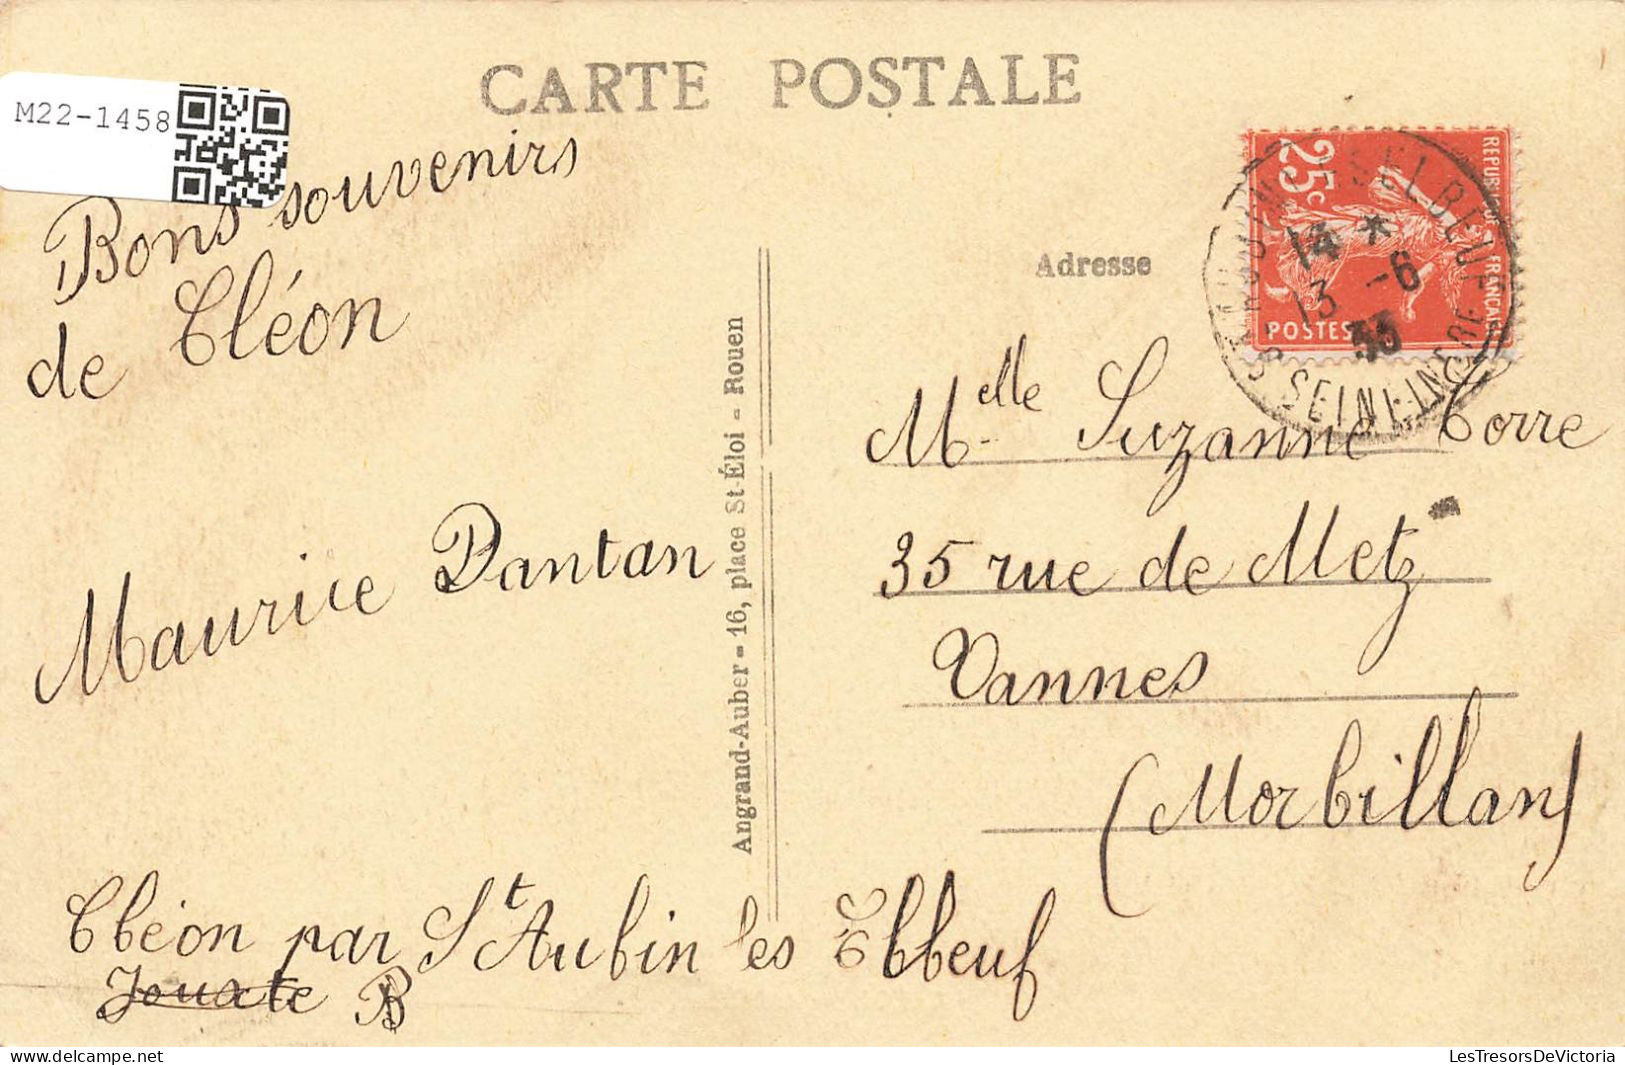 CARTE POSTALE
M22-1458
Bons souvenirs
de Cléon
Maurice Dantan
Cléon par St Aubin les Elbbeuf
B
Angrand-Auber - 16, place St-Éloi - Rouen
Adresse
25c
REPUBLIQUE FRANÇAISE
POSTES
ELBEUF
14 *
13 -6
33
SEINE INFRE
Melle Suzanne Corre
35 rue de Metz
Vannes
(Morbillan)
LesTresorsDeVictoria